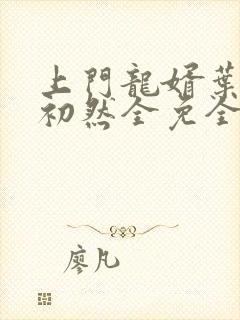 上門龍婿葉
初然全免全
廖凡